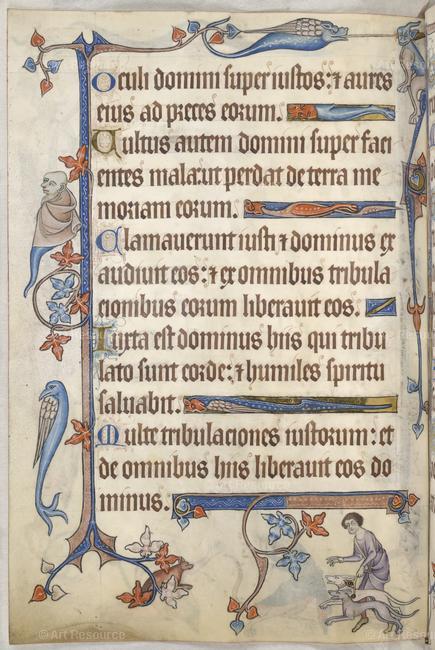 Oculi domini super iustos: ⁊ aures
eius ad preces eorum.
Vultus autem domini super faci
entes mala: ut perdat de terra me
moriam eorum.
Clamauerunt iusti ⁊ dominus ex
audiuit eos: ⁊ ex omnibus tribula
cionibus eorum liberauit eos.
Iuxta est dominus hiis qui tribu
lato sunt corde: ⁊ humiles spiritu
saluabit.
Multe tribulaciones iustorum: et
de omnibus hiis liberauit eos do
minus.
© Art Resource
© Art Resource